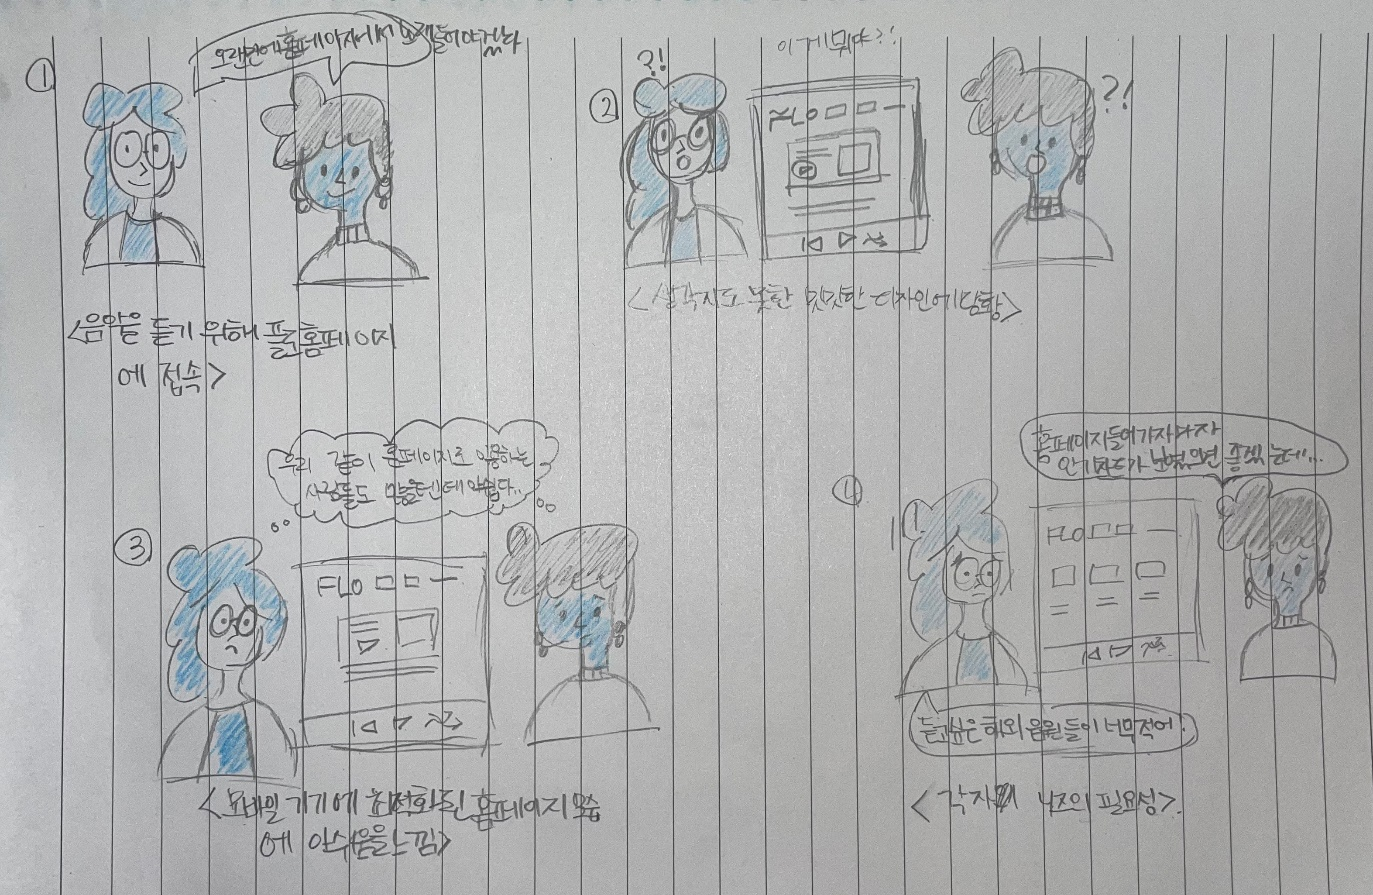 ①
오랜만에 홈페이지에서 노래 들어야겠다
<음악을 듣기 위해 플로 홈페이지
에 접속>
②
?!
이게 뭐야?!
?!
FLO
<생각지도 못한 밋밋한 디자인에 당황>
③
우리 같이 홈페이지로 이용하는
사람들도 많을텐데 아쉽다..
FLO
<모바일 기기에 최적화된 홈페이지 모습
에 아쉬움을 느낌>
④
홈페이지 들어가자마자
인기차트가 나왔으면 좋겠는데...
FLO
듣고싶은 해외 음원들이 너무적어!
<각자의 니즈의 필요성>